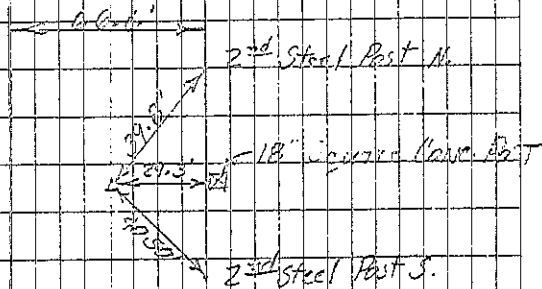 2nd Steel Post N.
39.2'
18" Square Conc. Post
29.3'
2nd Steel Post S.